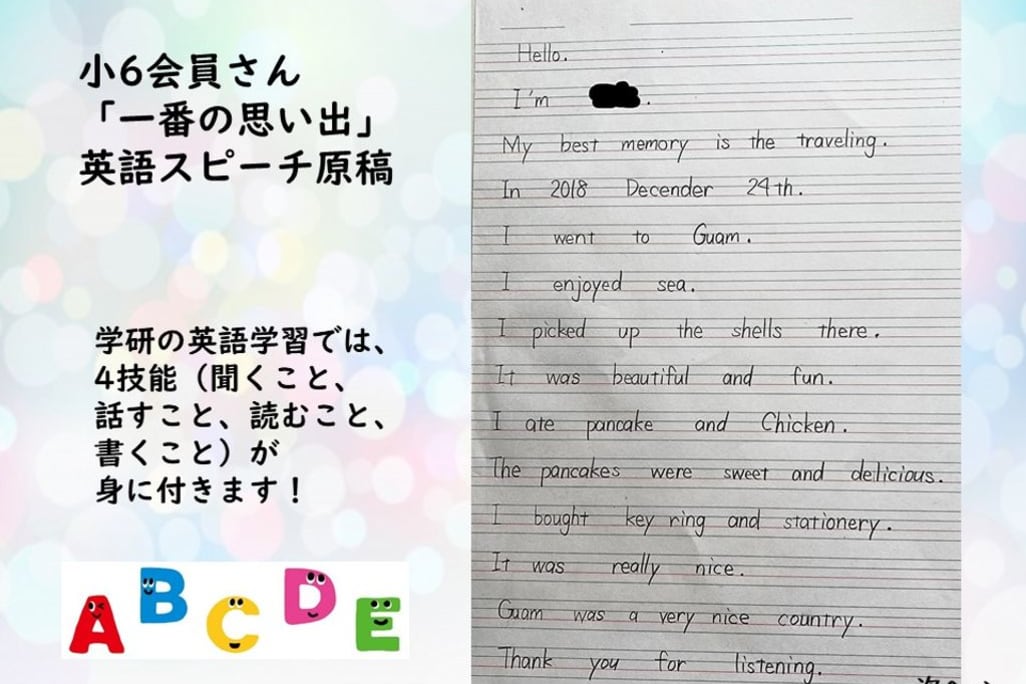 小6会員さん
「一番の思い出」
英語スピーチ原稿
学研の英語学習では、
4技能（聞くこと、
話すこと、読むこと、
書くこと）が
身に付きます！
A B C D E
Hello.
I'm
My best memory is the traveling.
In 2018 Decender 24th.
I went to Guam.
I enjoyed sea.
I picked up the shells there.
It was beautiful and fun.
I ate pancake and Chicken.
The pancakes were sweet and delicious.
I bought key ring and stationery.
It was really nice.
Guam was a very nice country.
Thank you for listening.